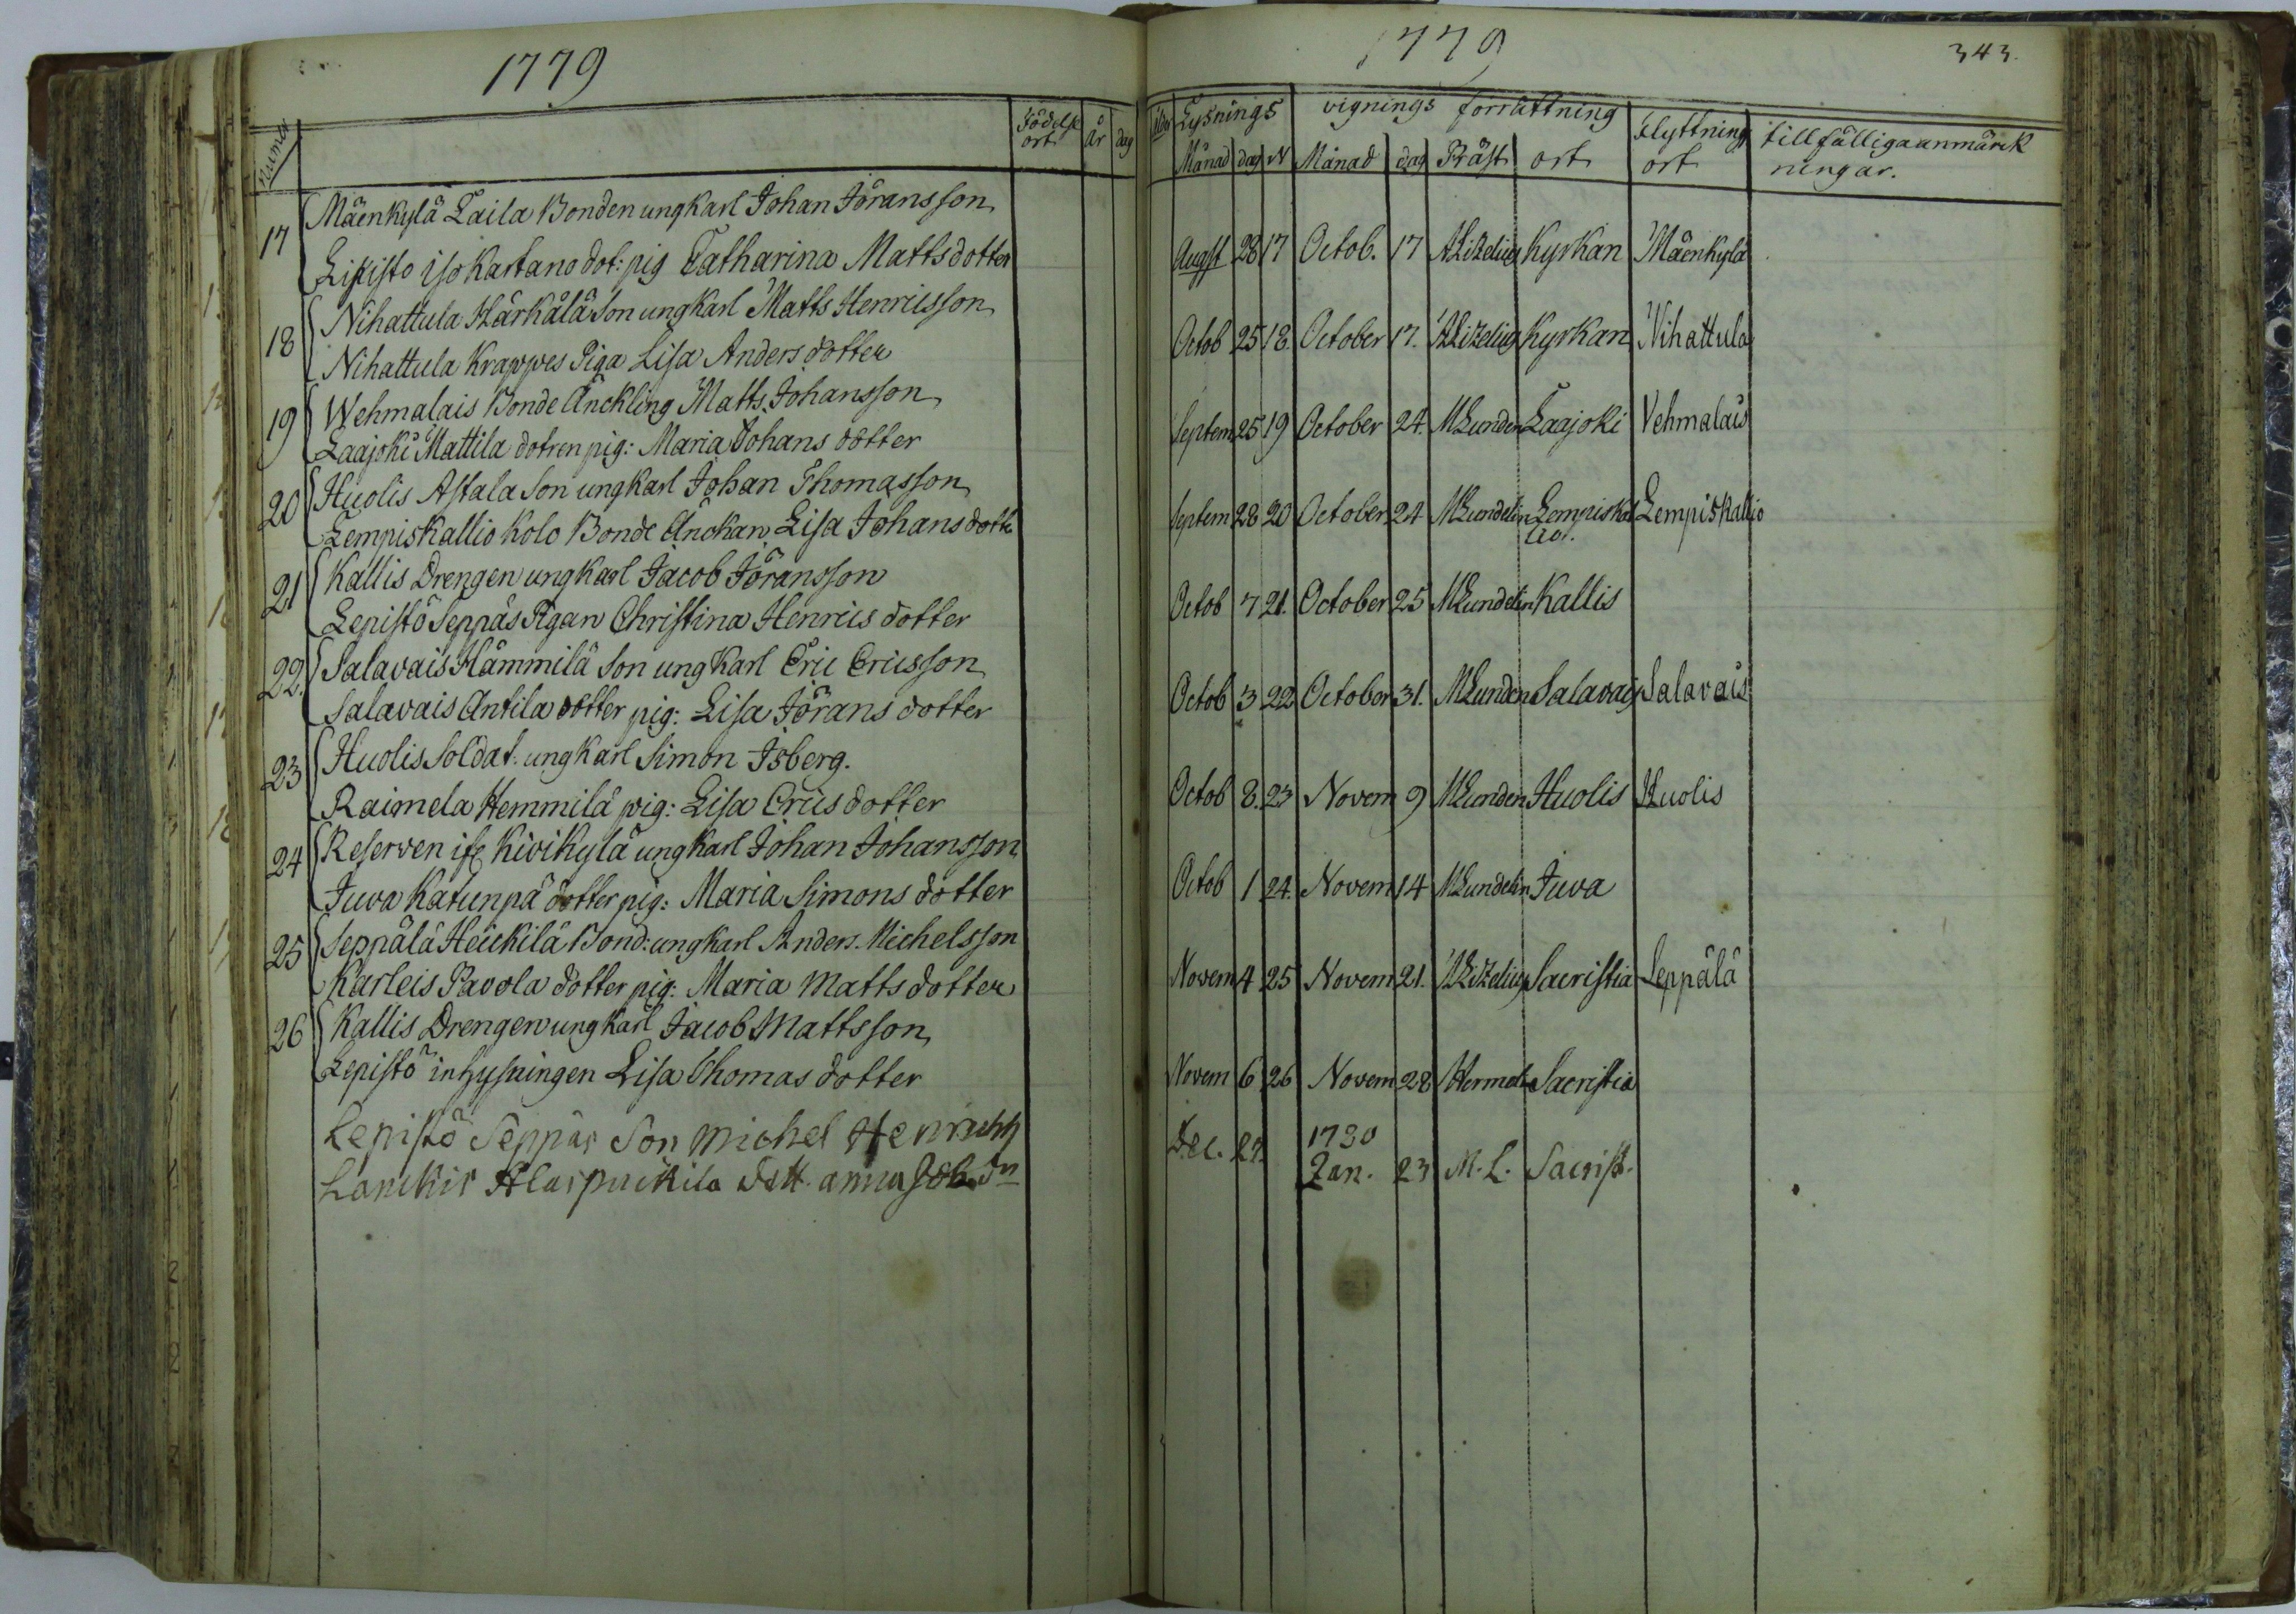 1779
Numer
Födelse ort
år
dag
17 Mäenkylä Laila Bonden ungkarl Johan Jöransson
Lipisto isokartano dot: pig Catharina Mattsdotter
18 Nihattula Härkälä Son ungkarl Matts Henricsson
Nihattula Krappes Piga Lisa Andersdotter
19 Wehmalais Bonde Änckling Matts Johansson
Laajoki Mattila dotren pig: Maria Johans dotter
20 Huolis Astala Son ungkarl Johan Thomasson
Lempiskallio Kolo Bonde Änckan Lisa Johansdotte
21 Kallis Drengen ungkarl Jacob Jöransson
Lepistö Seppäs Pigan Christina Henrics dotter
22. Salavais Hämmilä Son ungkarl Eric Ericsson
Salavais Antila dotter pig: Lisa Jörans dotter
23 Huolis Soldat. ungkarl Simon Isberg.
Raimela Hemmilä pig: Lisa Erics dotter
24 Reserven Kivikylä ungkarl Johan Johansson
Juva Katunpä dotter pig: Maria Simons dotter
25 Seppälä Heickilä Bond: ungkarl Anders. Michelsson
Karleis Pavola dotter pig: Maria Matts dotter
26 Kallis Drengen ungkarl Jacob Mattsson
Lepistö inhysningen Lisa Thomas dotter
Lepistö Seppäs Son Michel
Lanckis dott. anna
1779
343.
Lysnings
vignings förrättning
flyttning ort
tillfälliga anmärck
ningar.
Månad dag N Månad dag Präst ort
Augst 28 17 Octob. 17 A Lizelius Kyrkan Mäenkylä
Octob 25 18. October 17. A Lizelius Kyrkan Nihattula
Septem 25 19 October 24. M Lunden Laajoki Vehmalais
Septem 28 20 October 24 M Lundelin Lempiskal Lempiskallio
lio.
Octob 7 21. October 25 M Lundelin Kallis
Octob 3 22 October 31. M Lunden Salavais Salavais
Octob 8. 23 Novem 9 M Lunden Huolis Huolis
Octob 1 24. Novem 14 M Lundelin Juva
Novem 4 25 Novem 21. A Lizelius Sacristia Seppälä
Novem 6 26 Novem 28 Sacristia
Dec. 27. 1780
Jan. 23 M. L. Sacrist.